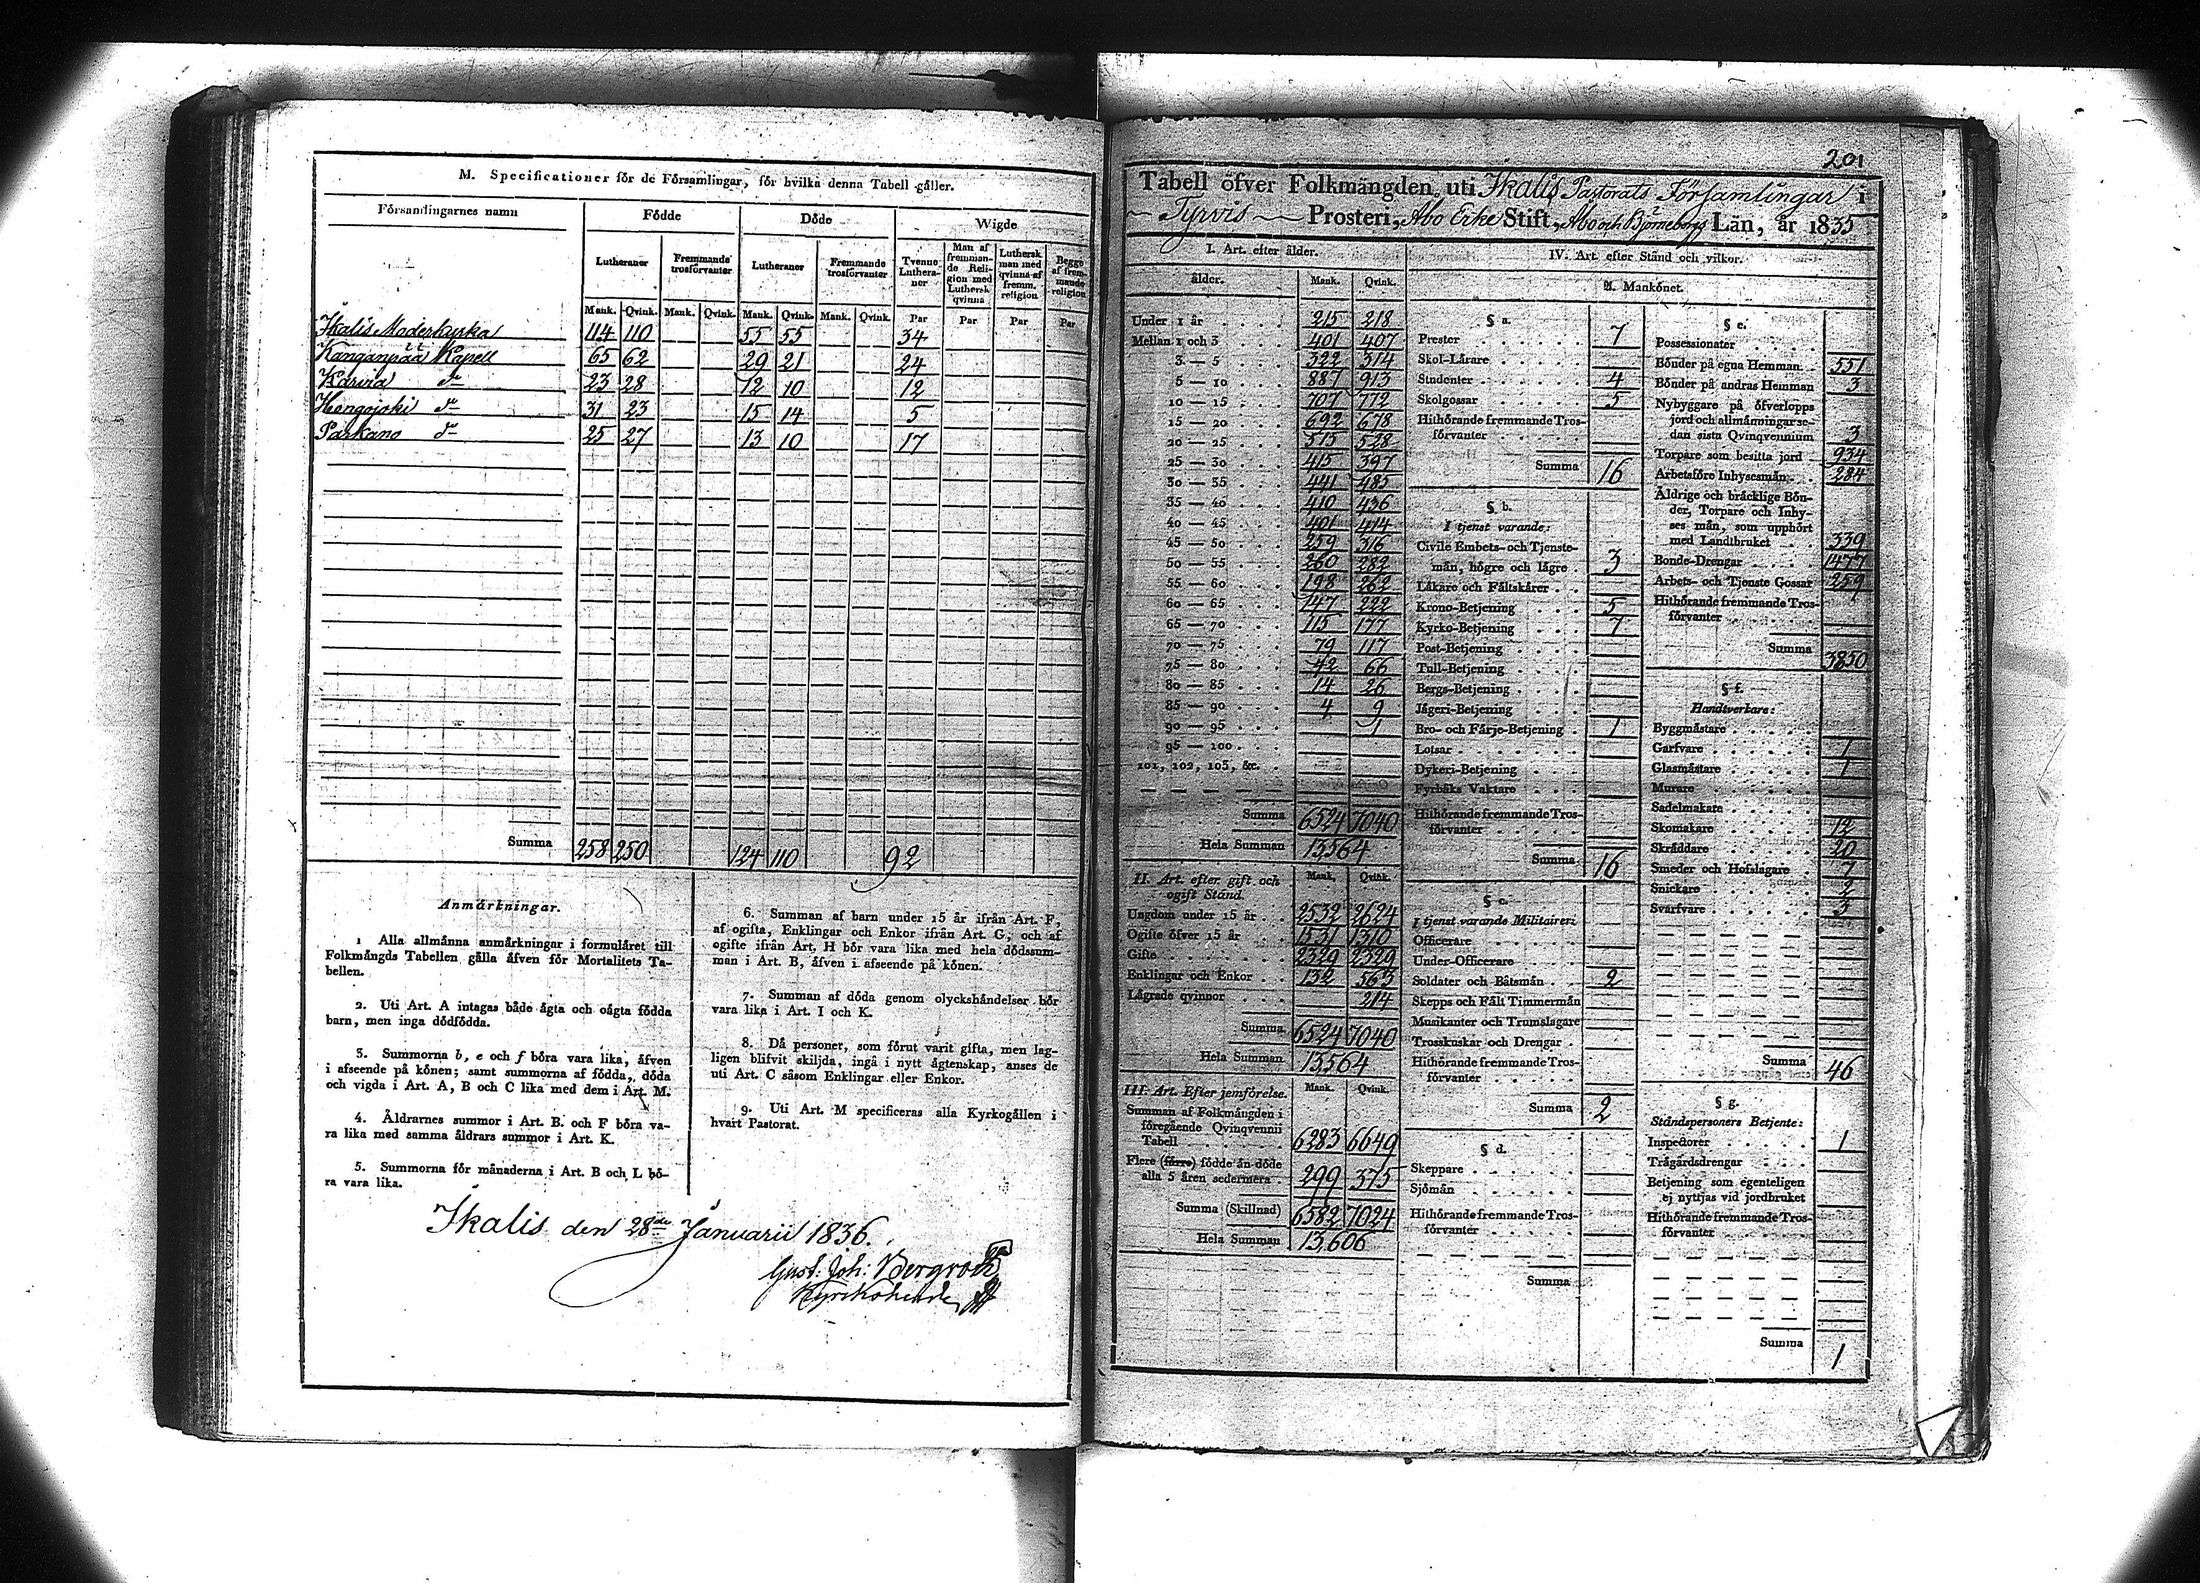 M. Specificationer för de Församlingar, för hvilka denna Tabell gäller.
Församlingarnes namn | Födde | Döde | Wigde
Lutheraner | Fremmande trosförvanter | Lutheraner | Fremmande trosförvanter | Tvenne Lutheraner | Man af fremmande Religion med Luthersk qvinna | Luthersk man med qvinna af fremm. religion | Begge af fremmande religion
Mank. Qvink. Mank. Qvink. Mank. Qvink. Mank. Qvink. Par Par Par Par
Ikalis Moderkyrka 114 110 55 55 34
Kanganpää Kapell 65 62 29 21 24
Karvia do 23 28 12 10 12
Hongojoki do 31 23 15 14 5
Parkano do 25 27 13 10 17
Summa 258 250 124 110 92
Anmärkningar.
1 Alla allmänna anmärkningar i formuläret till
Folkmängds Tabellen gälla äfven för Mortalitets Ta-
bellen.
2. Uti Art. A intagas både ägta och oägta födda
barn, men inga dödfödda.
3. Summorna b, e och f böra vara lika, äfven
i afseende på könen; samt summorna af födda, döda
och vigda i Art. A, B och C lika med dem i Art. M.
4. Åldrarnes summor i Art. B. och F böra va-
ra lika med samma åldrars summor i Art. K.
5. Summorna för månaderna i Art. B och L bö-
ra vara lika.
6. Summan af barn under 15 år ifrån Art. F,
af ogifta, Enklingar och Enkor ifrån Art. G, och af
ogifte ifrån Art, H bör vara lika med hela dödssum-
man i Art. B, äfven i afseende på könen.
7. Summan af döda genom olyckshändelser bör
vara lika i Art. I och K.
8. Då personer, som förut varit gifta, men lag-
ligen blifvit skiljda, ingå i nytt ägtenskap, anses de
uti Art. C såsom Enklingar eller Enkor.
9. Uti Art. M specificeras alla Kyrkogällen i
hvart Pastorat.
Ikalis den 28de Januarii 1836.
Gust: Joh: Bergroth
Kyrkoherde
201
Tabell öfver Folkmängden uti Ikalis Pastorats Församlingar i
Tyrvis Prosteri, Åbo Erke Stift, Åbo och Björneborgs Län, år 1835
I. Art. efter ålder.
ålder. Mank. Qvink.
Under 1 år 215 218
Mellan 1 och 3 401 407
3 — 5 322 314
5 — 10 887 913
10 — 15 707 772
15 — 20 692 678
20 — 25 515 528
25 — 30 415 397
30 — 35 441 485
35 — 40 410 436
40 — 45 401 414
45 — 50 259 316
50 — 55 260 282
55 — 60 198 262
60 — 65 147 222
65 — 70 115 177
70 — 75 79 117
75 — 80 42 66
80 — 85 14 26
85 — 90 4 9
90 — 95 1
95 — 100
101, 102, 103, &c.
Summa 6524 7040
Hela Summan 13,564
II. Art. efter gift och ogift Stånd. Mank. Qvink.
Ungdom under 15 år 2532 2624
Ogifte öfver 15 år 1531 1310
Gifte 2329 2329
Enklingar och Enkor 132 563
Lägrade qvinnor 214
Summa 6524 7040
Hela Summan 13,564
III. Art. Efter jemförelse. Mank. Qvink.
Summan af Folkmängden i
föregående Qvinqvennii
Tabell 6283 6649
Flere (färre) födde än döde
alla 5 åren sedermera 299 375
Summa (Skillnad) 6582 7024
Hela Summan 13,606
IV. Art. efter Stånd och vilkor.
A. Mankönet.
§ a.
Prester 7
Skol-Lärare
Studenter 4
Skolgossar 5
Hithörande fremmande Tros-
förvanter
Summa 16
§ b.
I tjenst varande:
Civile Embets- och Tjenste-
män, högre och lägre 3
Läkare och Fältskärer
Krono-Betjening 5
Kyrko-Betjening 7
Post-Betjening
Tull-Betjening
Bergs-Betjening
Jägeri-Betjening
Bro- och Färje-Betjening 1
Lotsar
Dykeri-Betjening
Fyrbåks Vaktare
Hithörande fremmande Tros-
förvanter
Summa 16
§ c.
I tjenst varande Militairer:
Officerare
Under-Officerare
Soldater och Båtsmän 2
Skepps och Fält Timmermän
Musikanter och Trumslagare
Trosskuskar och Drengar
Hithörande fremmande Tros-
förvanter
Summa 2
§ d.
Skeppare
Sjömän
Hithörande fremmande Tros-
förvanter
Summa
§ e.
Possessionater
Bönder på egna Hemman 551
Bönder på andras Hemman 3
Nybyggare på öfverlopps
jord och allmänningar se-
dan sista Qvinqvennium 3
Torpare som besitta jord 934
Arbetsföre Inhysesmän 284
Äldrige och bräcklige Bön-
der, Torpare och Inhy-
ses män, som upphört
med Landtbruket 339
Bonde-Drengar 1477
Arbets- och Tjenste Gossar 259
Hithörande fremmande Tros-
förvanter
Summa 3850
§ f.
Handtverkare:
Byggmästare
Garfvare 1
Glasmästare 1
Murare
Sadelmakare
Skomakare 12
Skräddare 20
Smeder och Hofslagare 7
Snickare 2
Svarfvare 3
Summa 46
§ g.
Ståndspersoners Betjente:
Inspectorer 1
Trägårdsdrengar
Betjening som egenteligen
ej nyttjas vid jordbruket
Hithörande fremmande Tros-
förvanter
Summa 1